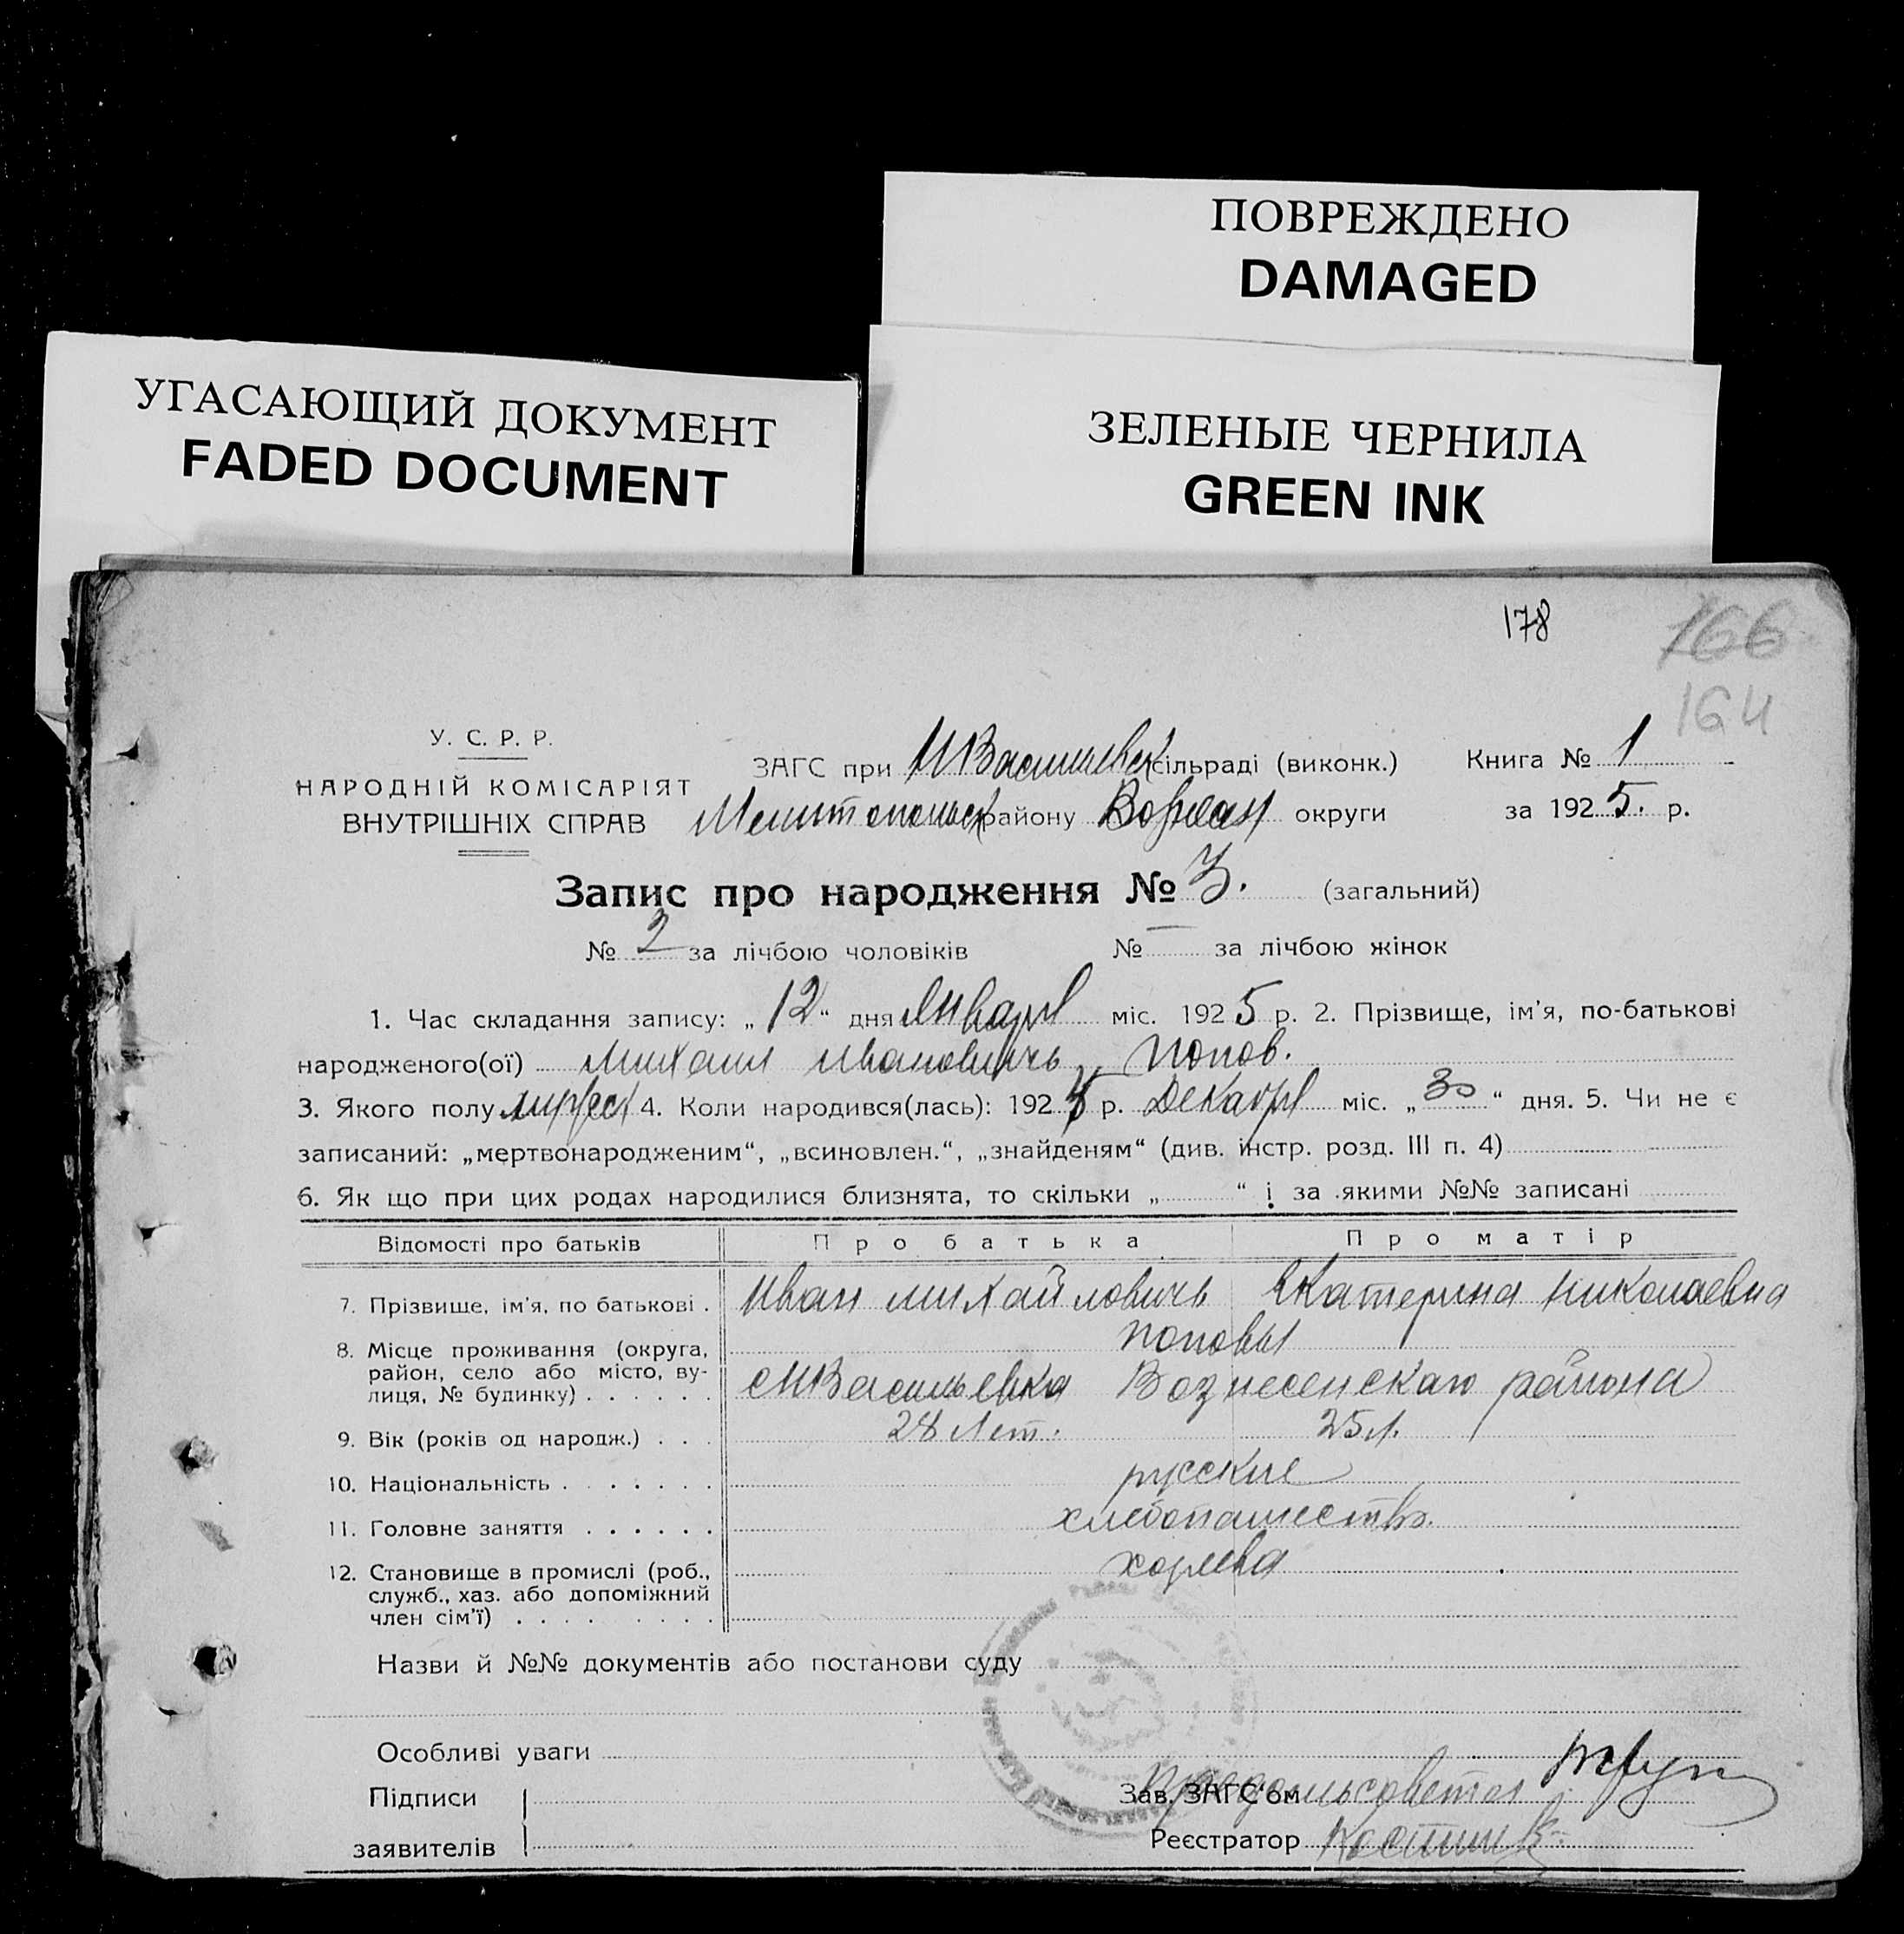 ПОВРЕЖДЕНО
DAMAGED
УГАСАЮЩИЙ ДОКУМЕНТ
FADED DOCUMENT
ЗЕЛЕНЫЕ ЧЕРНИЛА
GREEN INK
178
166
164
У. С. Р. Р.
НАРОДНІЙ КОМІСАРІЯТ
ВНУТРІШНІХ СПРАВ
ЗАГС при МВасильевск сільраді (виконк.) Книга № 1
Мелитопольск району округи за 1925. р.
Запис про народження № 3. (загальний)
№ 2 за лічбою чоловіків № — за лічбою жінок
1. Час складання запису: „12“ дня Января міс. 1925 р. 2. Прізвище, ім'я, по-батькові
народженого(ої) Михаил Ивановичь Попов.
3. Якого полу 4. Коли народився(лась): 192 р. Декабря міс. „30“ дня. 5. Чи не є
записаний: „мертвонародженим“, „всиновлен.“, „знайденям“ (див. інстр. розд. III п. 4)
6. Як що при цих родах народилися близнята, то скільки „ “ і за якими №№ записані
Відомості про батьків Про батька Про матір
7. Прізвище, ім'я, по батькові . Иван Михайловичь Екатерина Николаевна
Поповы
8. Місце проживання (округа,
район, село або місто, ву-
лиця, № будинку) . . . . . . МВасильевка Вознесенскаго района
9. Вік (років од народж.) . . . 28 лет. 25 л.
10. Національність . . . . . . . русские
11. Головне заняття . . . . . . хлебопашество.
12. Становище в промислі (роб.,
служб., хаз. або допоміжний
член сім'ї) . . . . . . . .
Назви й №№ документів або постанови суду
Особливі уваги
Підписи
заявителів
Зав. ЗАГС'ом
Реєстратор